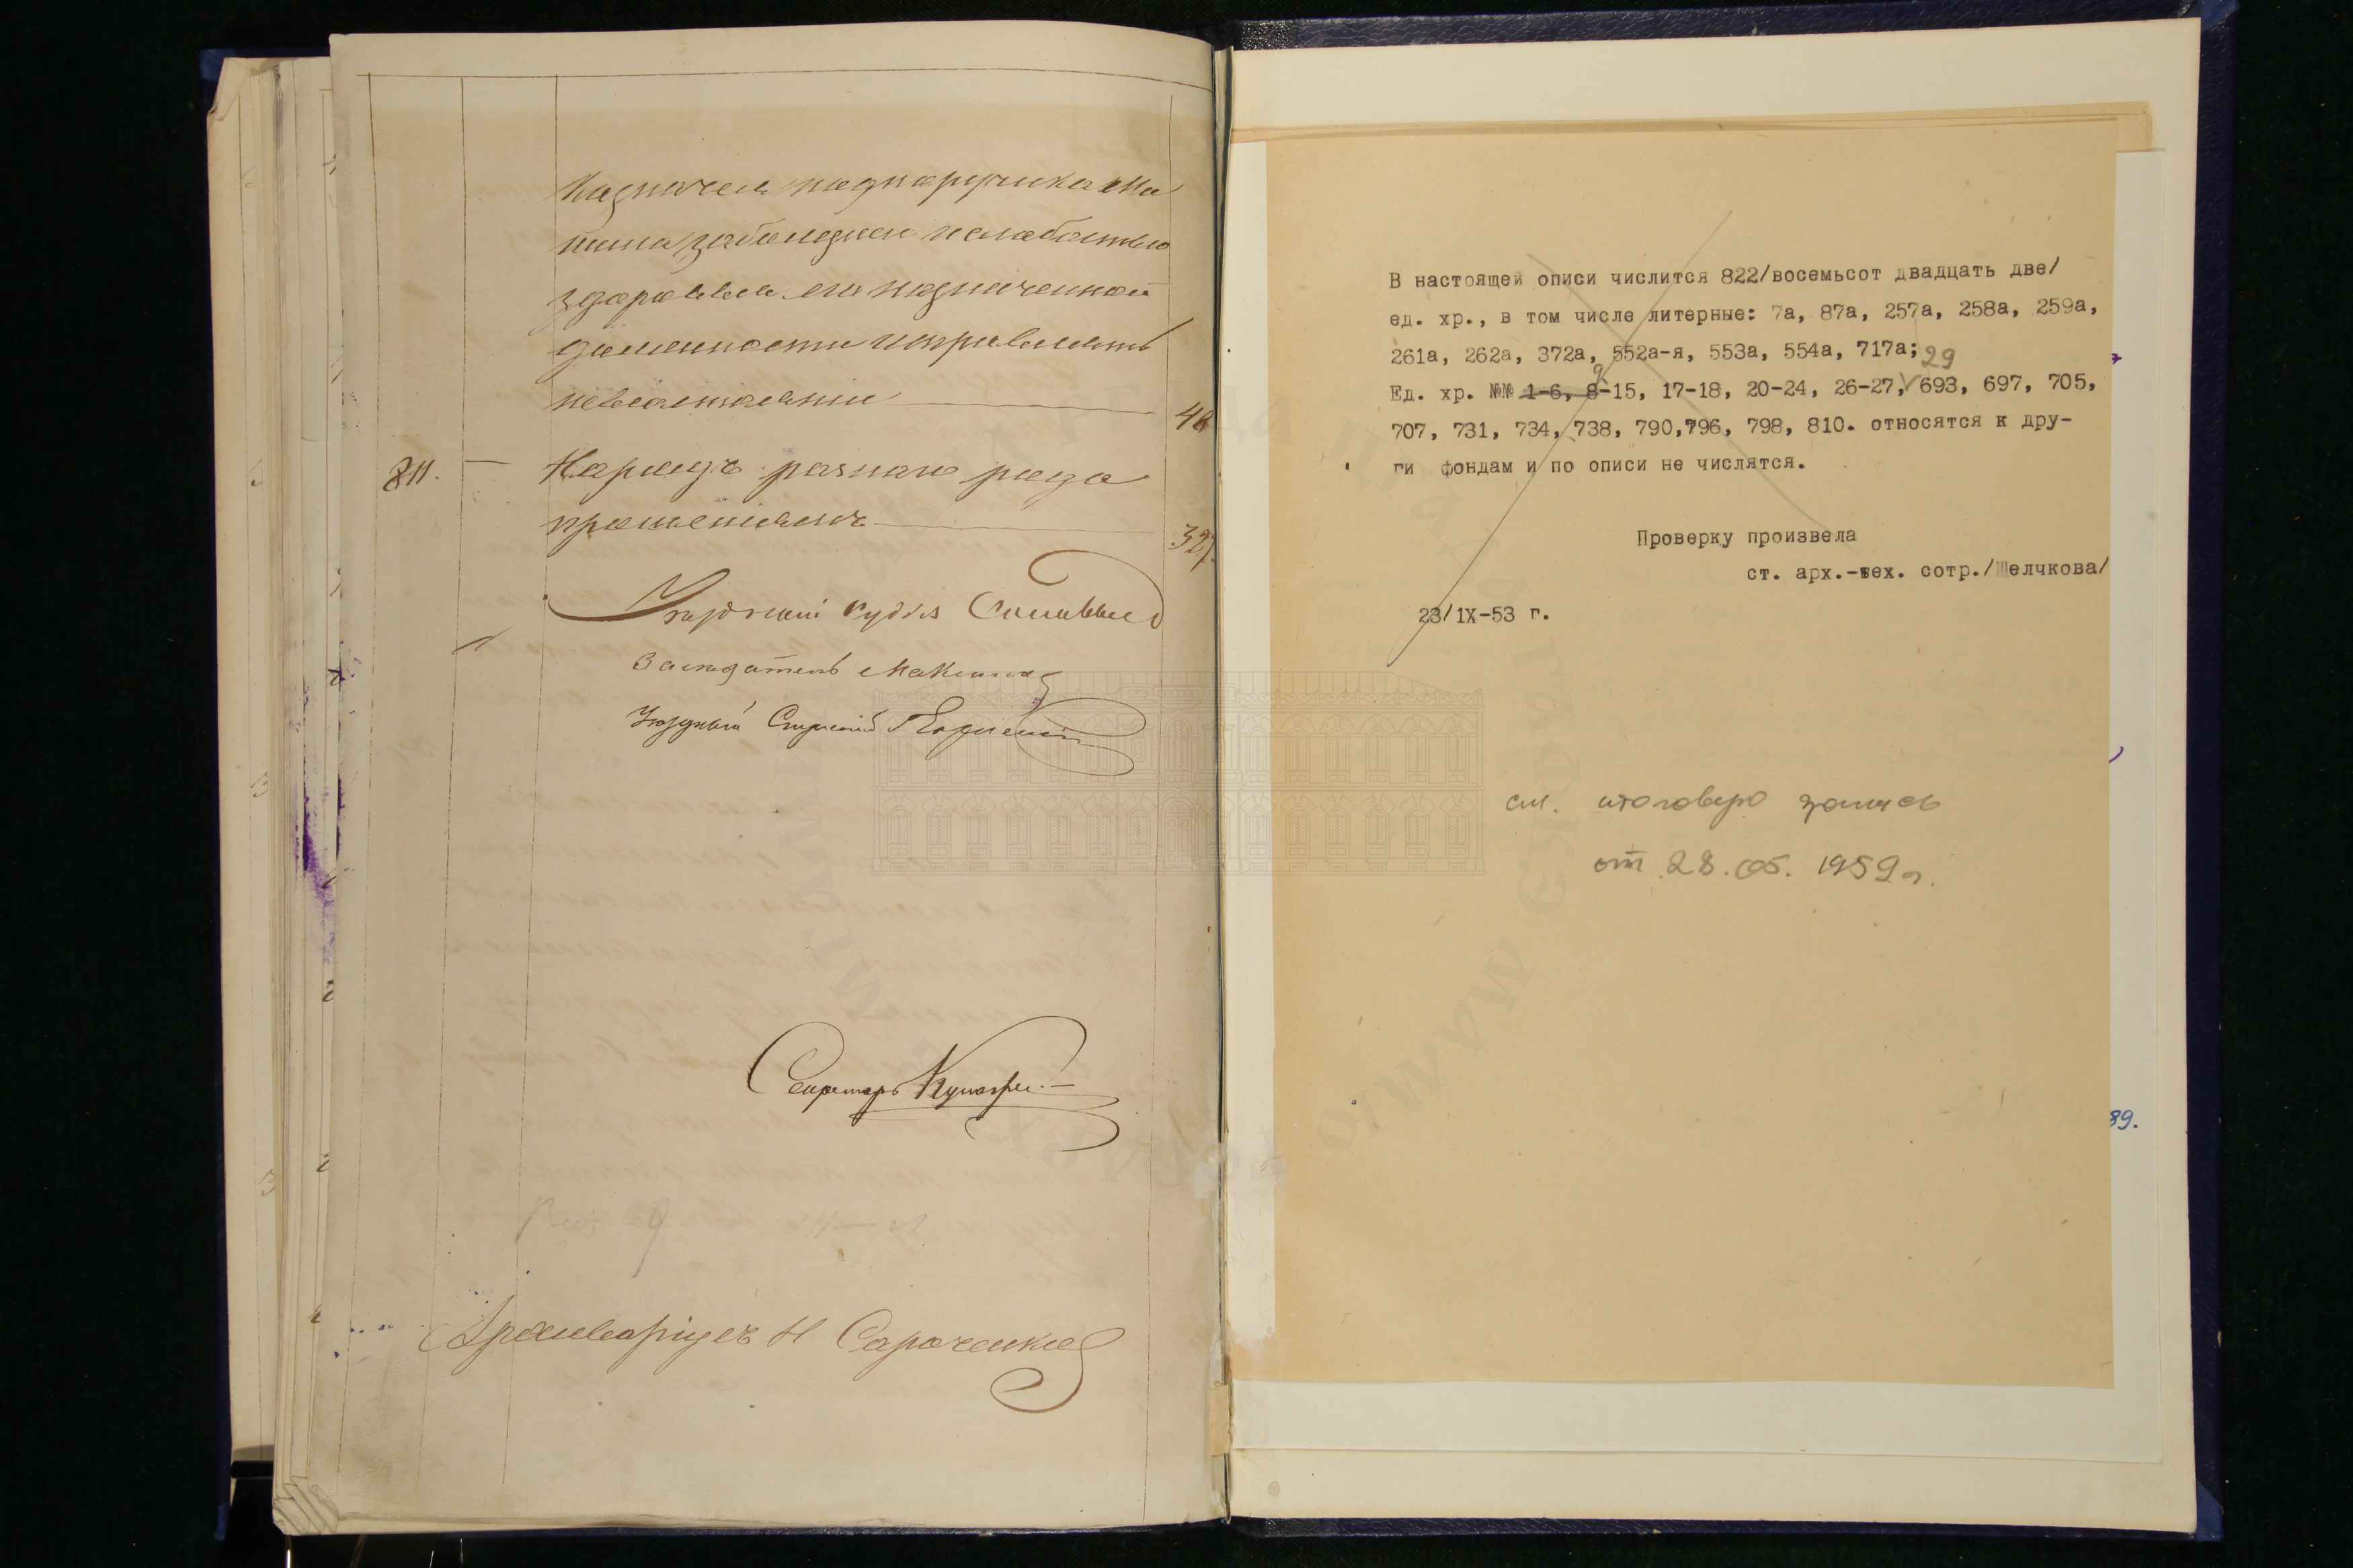 Казначея подпоручика Ма
тина, заболезнею и слабостью
здоровья его назначенной
должности исправлять
невсостоянии 48
811. Нарядъ разнаго рода
прошеніямъ 327.
Уездный Судья
Заседатель
Уездный
Секретарь
Архиваріусъ Н Сароченко
В настоящей описи числится 822/восемьсот двадцать две/
ед. хр., в том числе литерные: 7а, 87а, 257а, 258а, 259а,
261а, 262а, 372а, 552а-я, 553а, 554а, 717а; 29
Ед. хр. №№ 1-6, 8-15, 17-18, 20-24, 26-27, 693, 697, 705,
707, 731, 734, 738, 790,796, 798, 810. относятся к дру-
ги фондам и по описи не числятся.
Проверку произвела
ст. арх.-тех. сотр./Шелчкова/
23/IX-53 г.
см. итоговую запись
от 28.05. 1959 г.
89.